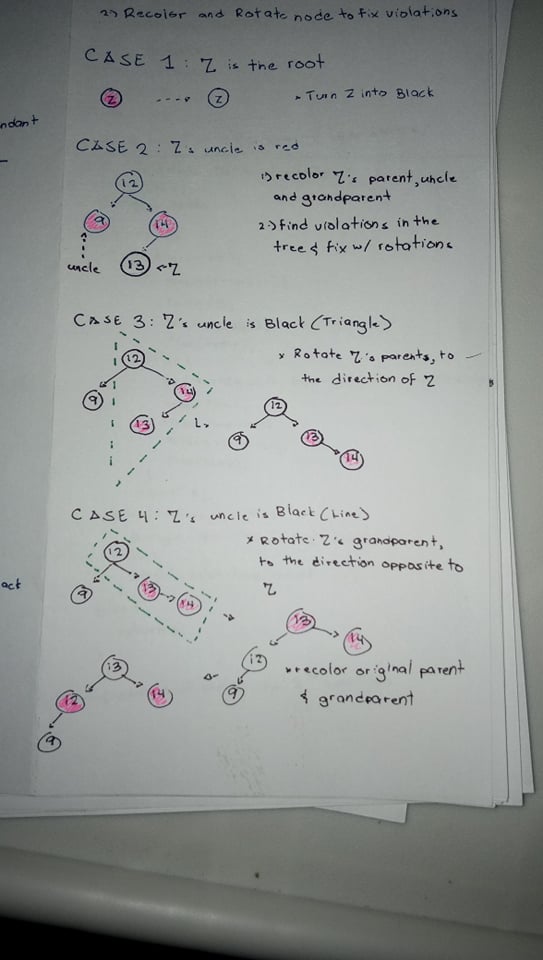 2) Recolor and Rotate node to fix violations
ndant
CASE 1: Z is the root
Z
Z
* Turn Z into Black
CASE 2: Z's uncle is red
12
9
14
uncle
13 <- Z
1) recolor Z's parent, uncle
and grandparent
2) find violations in the
tree & fix w/ rotations
CASE 3: Z's uncle is Black (Triangle)
12
9
14
13
* Rotate Z's parents, to
the direction of Z
12
9
13
14
CASE 4: Z's uncle is Black (Line)
12
9
13
14
* Rotate Z's grandparent,
to the direction opposite to
Z
act
13
12
14
9
* recolor original parent
& grandparent
13
12
14
9